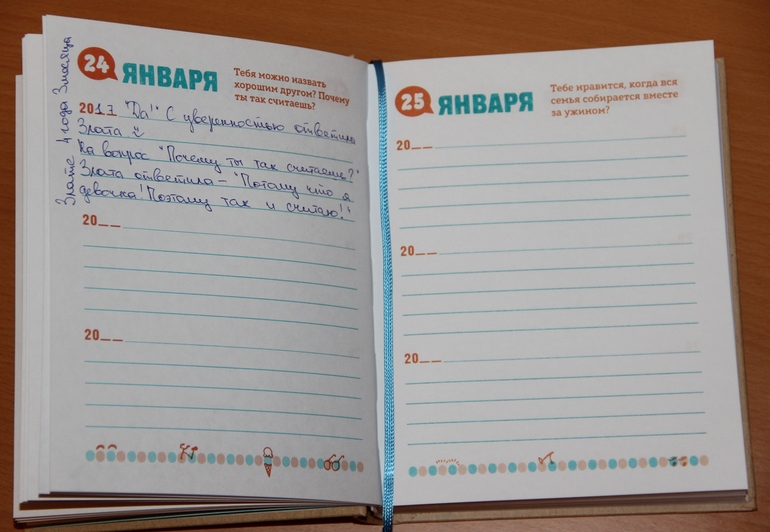 24 ЯНВАРЯ
Тебя можно назвать
хорошим другом? Почему
ты так считаешь?
Злате 4 года 3 месяца
2017 "Да!" С уверенностью ответила
Злата
На вопрос "Почему ты так считаешь?"
Злата ответила - "Потому что я
девочка! Поэтому так и считаю!"
20__
20__
25 ЯНВАРЯ
Тебе нравится, когда вся
семья собирается вместе
за ужином?
20__
20__
20__